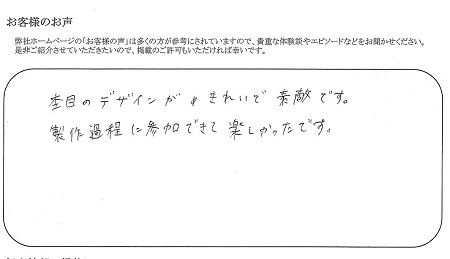 お客様のお声
弊社ホームページの「お客様の声」は多くの方が参考にされていますので、貴重な体験談やエピソードなどをお聞かせください。
是非ご紹介させていただきたいので、掲載のご許可もいただければ幸いです。
杢目のデザインが きれいで 素敵です。
製作過程に参加できて 楽しかったです。